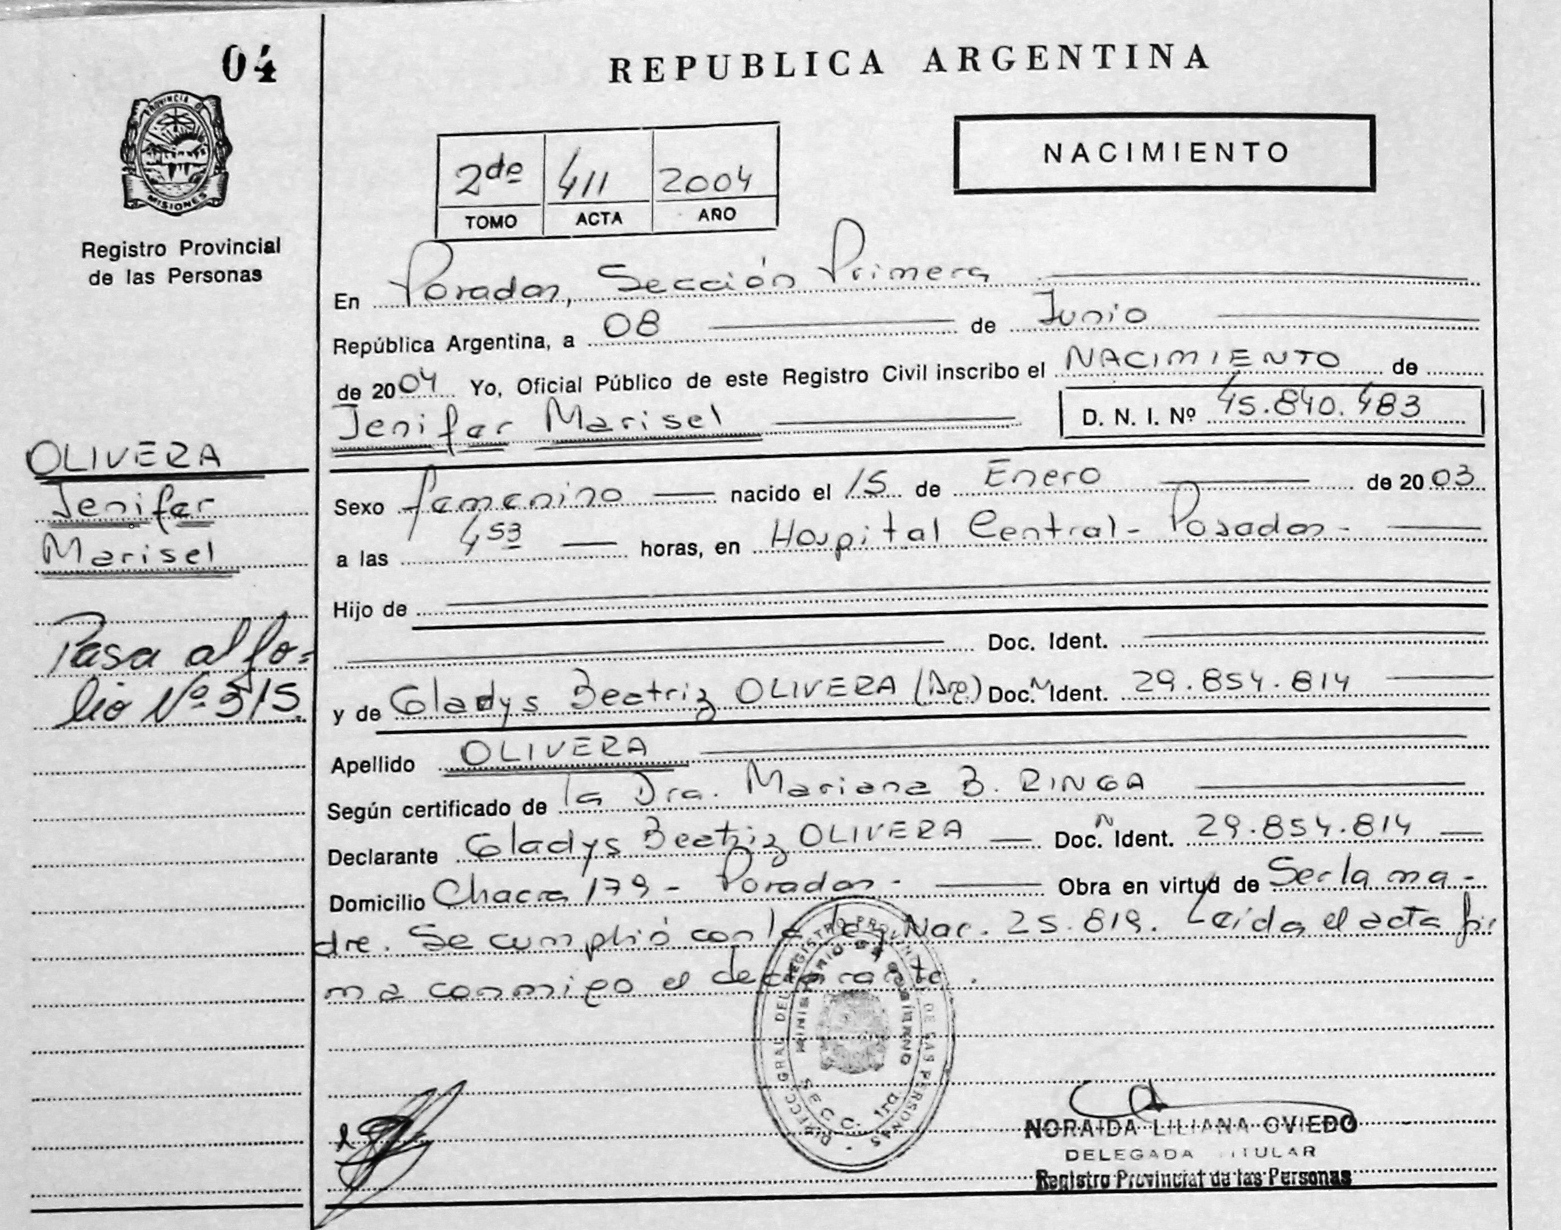 04
REPUBLICA ARGENTINA
PROVINCIA DE
MISIONES
Registro Provincial
de las Personas
NACIMIENTO
2do 411 2004
TOMO ACTA AÑO
En Posadas, Sección Primera
República Argentina, a 08 de Junio
de 2004 Yo, Oficial Público de este Registro Civil inscribo el NACIMIENTO de
Jenifer Marisel D. N. I. Nº 45.840.483
OLIVERA
Jenifer
Marisel
Sexo femenino nacido el 15 de Enero de 2003
a las 4 53 horas, en Hospital Central - Posadas -
Hijo de
Doc. Ident.
Pasa al fo=
lio Nº 315.
y de Gladys Beatriz OLIVERA (Arg.) Doc. N Ident. 29.854.814
Apellido OLIVERA
Según certificado de la Dra. Mariana B. RINGA
Declarante Gladys Beatriz OLIVERA Doc. N Ident. 29.854.814
Domicilio Chacra 179 - Posadas - Obra en virtud de Ser la ma-
dre. Se cumplió con la ley Nac. 25.819. Leída el acta fir
ma conmigo el declarante.
DIRECC. GRAL. DEL REGISTRO PROVINCIAL DE LAS PERSONAS
MINISTERIO DE GOBIERNO
SECC. 1ra.
NORAIDA LILIANA OVIEDO
DELEGADA TITULAR
Registro Provincial de las Personas